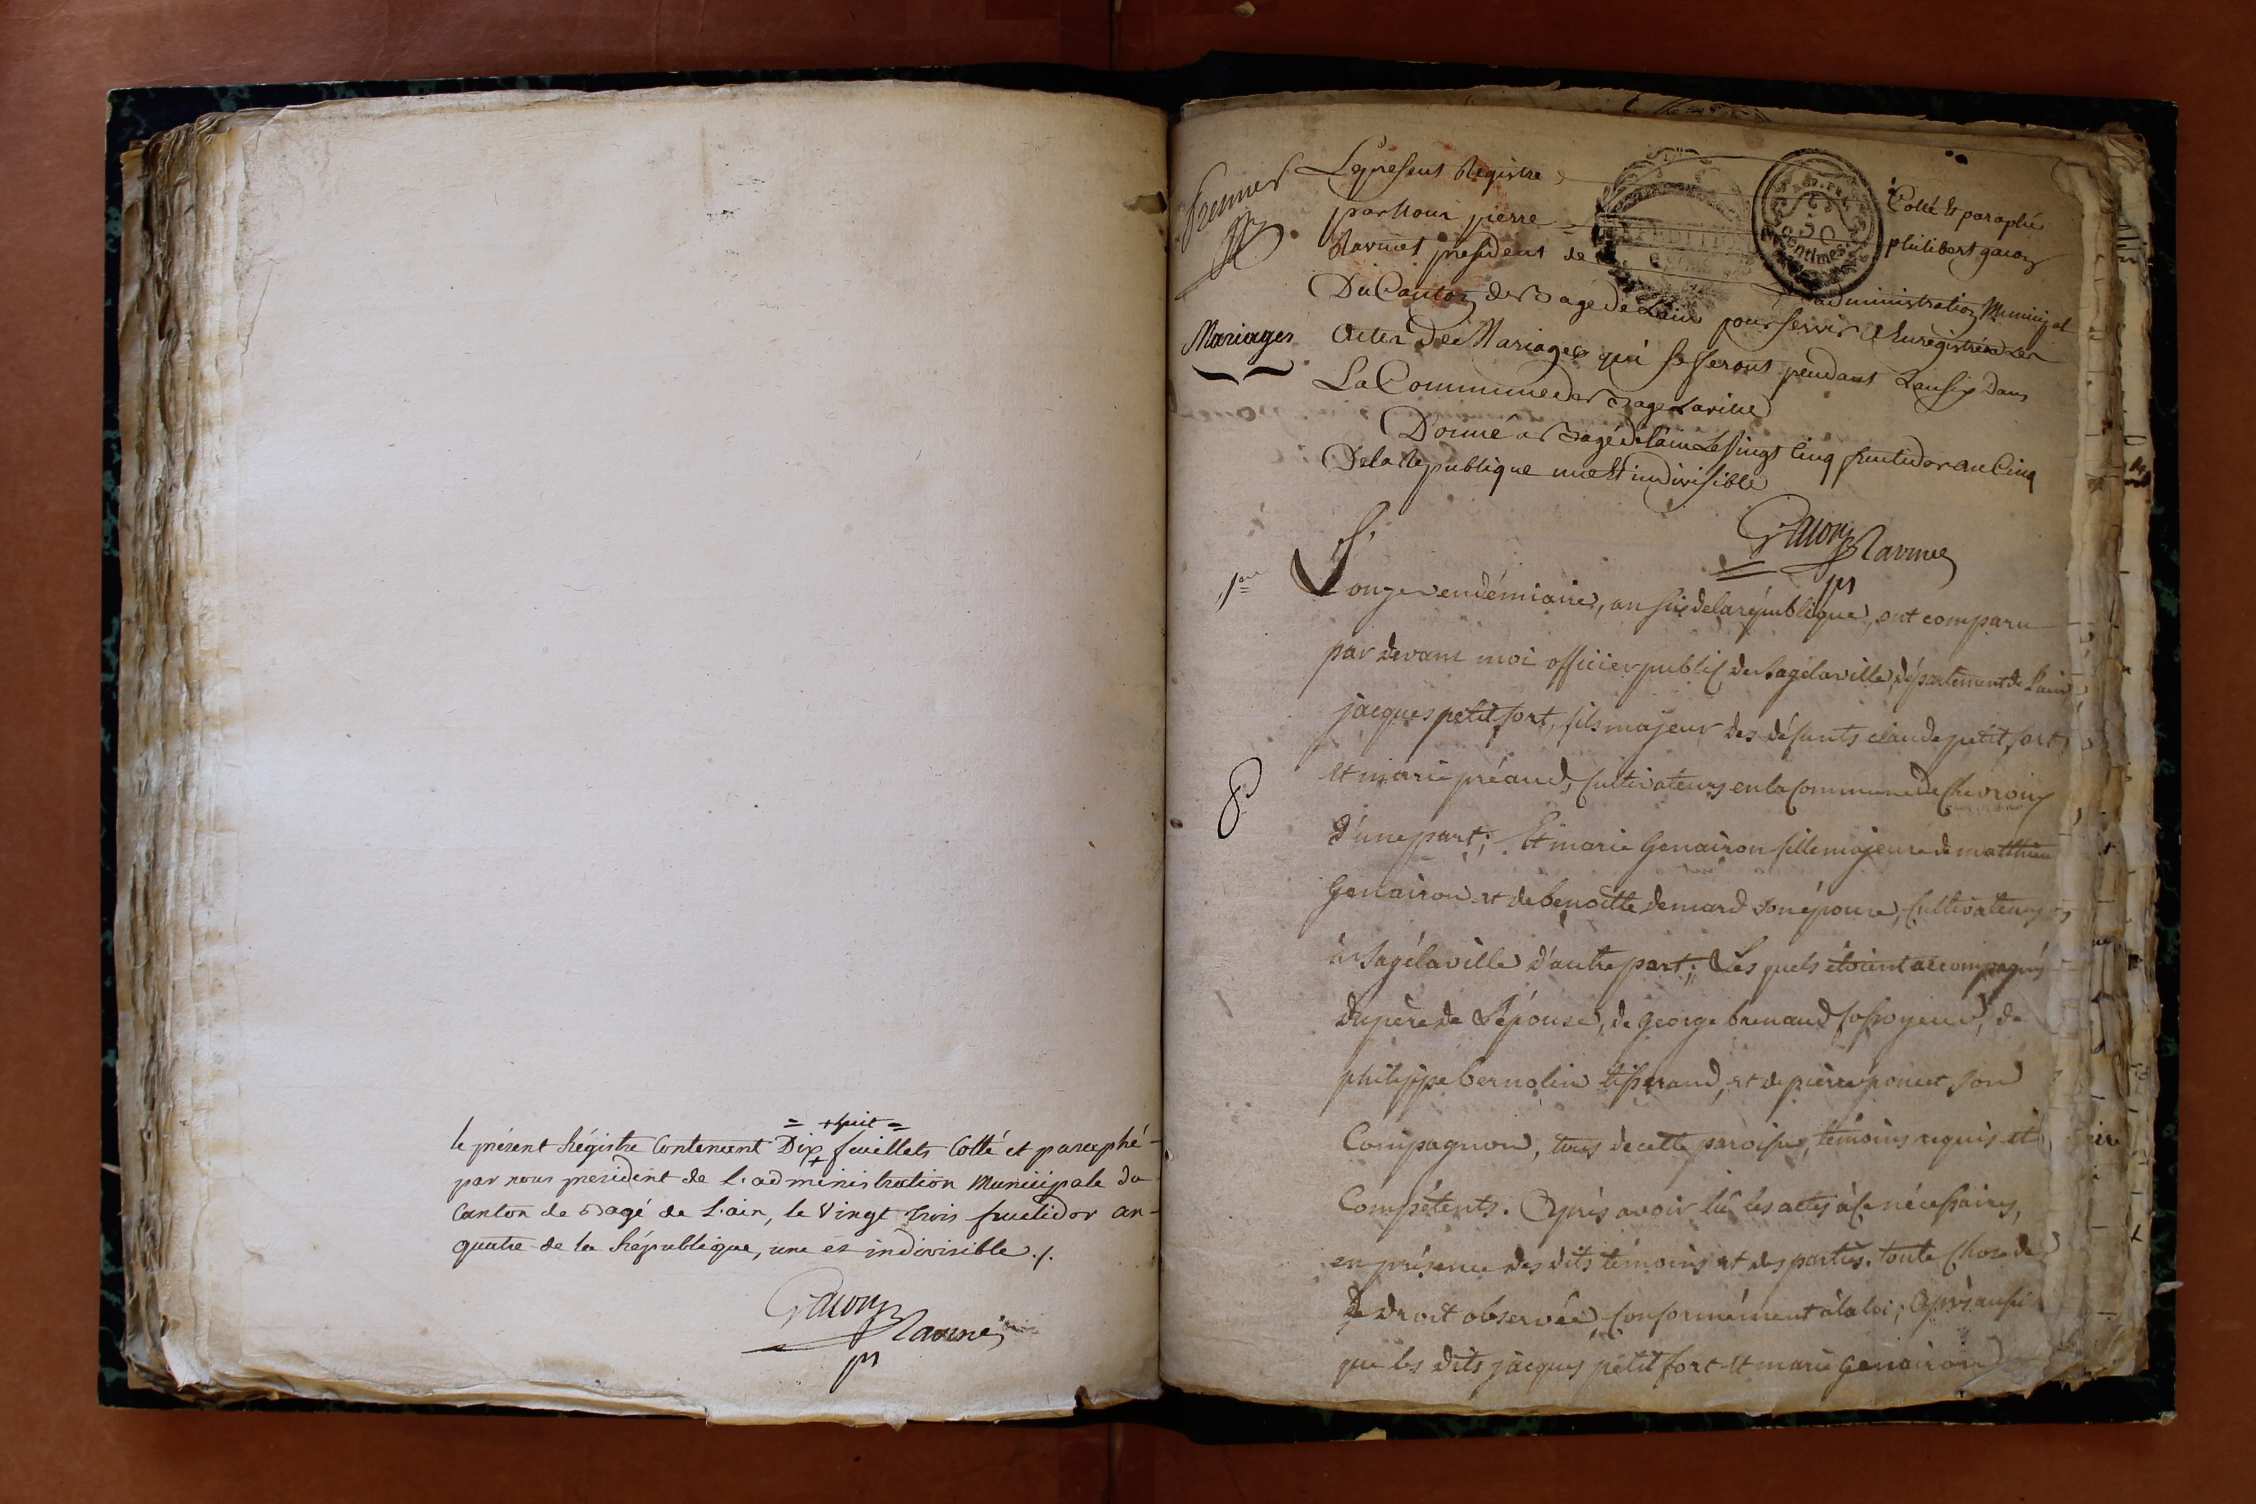 = + huit =
le présent Régistre Contenant Dix + feuillets Cotté et paraphé
par nous president de L'administration Municipale du
Canton de Bagé de L'ain, le Vingt trois fructidor an
quatre de la République, une et indivisible ./.
Gacon
Ravinet
pst
Premier
Le present Registre Cotté & paraphé
par Nous pierre philibert gacon
Ravinet president de L'administration Municipal
Du Canton de Bagé de Lain pour servir A Enregistrer Les
Mariages
Actes Des Mariages qui se feront pendant Lansix Dans
La Commune de Bagé Laville
Donné a Bagé de lain Le Vingt Cinq fructidor an Cinq
De la Republique une Et indivisible
50
Centimes
Gacon
Ravinet
pst
1er
Le onze vendémiaire, an six de la république, ont comparu
par devant moi officier public de bagélaville, département de Lain,
jacques petit fort, fils majeur des défunts claude petit fort
et marie préaud, Cultivateurs en la Commune de Chevroux
d'une part; Et marie Genairon fille majeure de matthieu
Genairon et de benoitte demard son épouse, Cultivateurs
à bagélaville d'autre part; Les quels étoient accompagnés
du père de L'épouse, de george brenaud fossoyeur, de
philippe bernolin tisserand, et de pierre poncet son
Compagnon, tous de cette paroisse, témoins requis et
Compétents. Après avoir lû les actes à ce nécessaires,
en présence des dits témoins et des parties. toute Chose de
de droit observée, Conformément à la loi; Après aussi
que les dits jacques petit fort et marie genairon